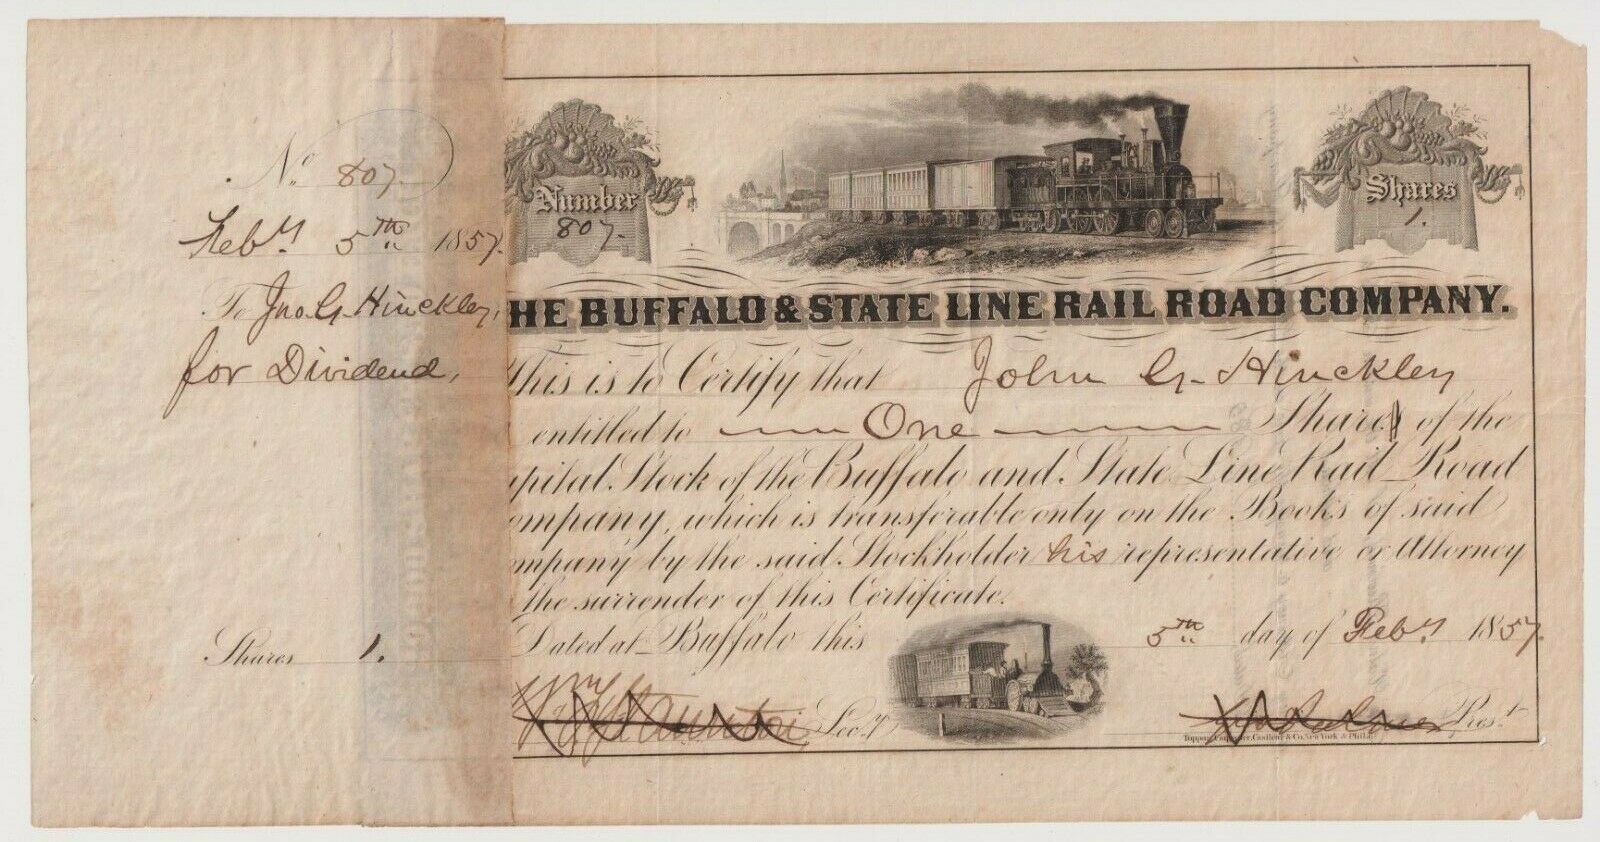 No 807.
Feby 5th 1857.
To Jno. G. Hinckley,
for Dividend,
Shares 1.
Number
807.
Shares
1.
HE BUFFALO & STATE LINE RAIL ROAD COMPANY.
This is to Certify that John G. Hinckley
entitled to One Share of the
pital Stock of the Buffalo and State Line Rail Road
ompany, which is transferable only on the Books of said
ompany by the said Stockholder his representative or Attorney
the surrender of this Certificate.
Dated at Buffalo this 5th day of Feby 1857.
Secy
Prest
Toppan, Carpenter, Casilear & Co. New York & Phila.